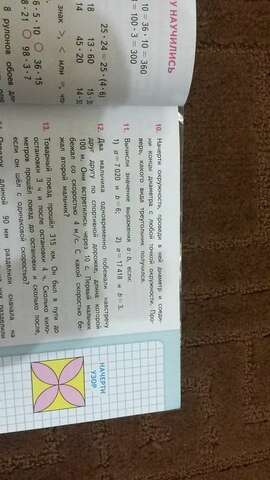 У НАУЧИЛИСЬ
10 = 36 · 10 = 360
· 100 · 3 = 300
25 · 24 = 25 · (4 · 6)
18 13 · 60
14 45 · 20
знак >, < или =,
6 · 5 · 10 ○ 36 · 15
8 · 21 ○ 98 · 3 · 7
8 рулонов обоев
10. Начерти окружность, проведи в ней диаметр и соеди-
ни концы диаметра с любой точкой окружности. Про-
верь, какого вида треугольник получился.
11. Вычисли значение выражения a : b, если:
1) a = 7 020 и b = 6; 2) a = 17 418 и b = 3.
12. Два мальчика одновременно побежали навстречу
друг другу по спортивной дорожке, длина которой
100 м. Они встретились через 10 с. Первый мальчик
бежал со скоростью 4 м/с. С какой скоростью бе-
жал второй мальчик?
13. Товарный поезд прошёл 315 км. Он был в пути до
остановки 3 ч, и после остановки 4 ч. Сколько кило-
метров прошёл поезд до остановки и сколько после,
если он шёл с одинаковой скоростью?
длиной 90 мм разделили сначала на
НАЧЕРТИ
УЗОР